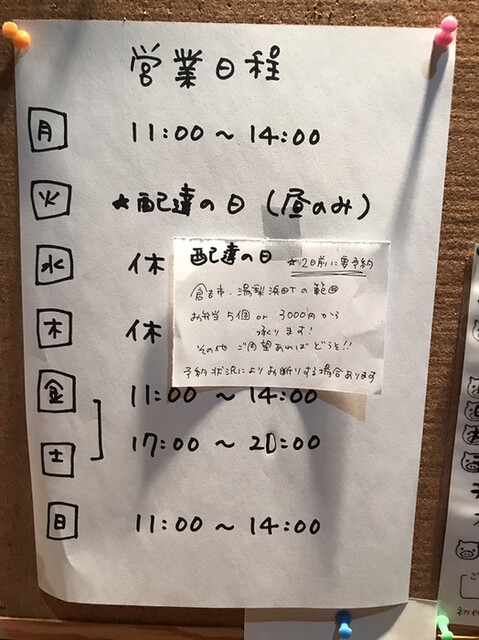 営業日程
月 11:00～14:00
火 ★配達の日(昼のみ)
水 休
木 休
金 11:00～14:00
土 17:00～20:00
日 11:00～14:00
配達の日 ★2日前に要予約
倉吉市・湯梨浜町の範囲
お弁当5個or 3000円から
承ります!
その他ご希望あればどうぞ!!
予約状況によりお断りする場合あります